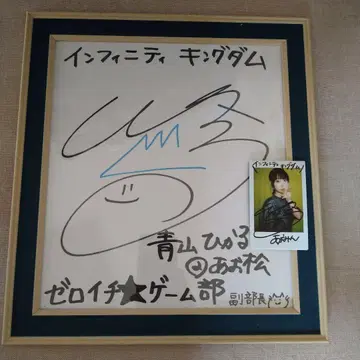 インフィニティ キングダム
インフィニティ キングダム
青山 ひかる
@あお松
ゼロイチ★ゲーム部
副部長